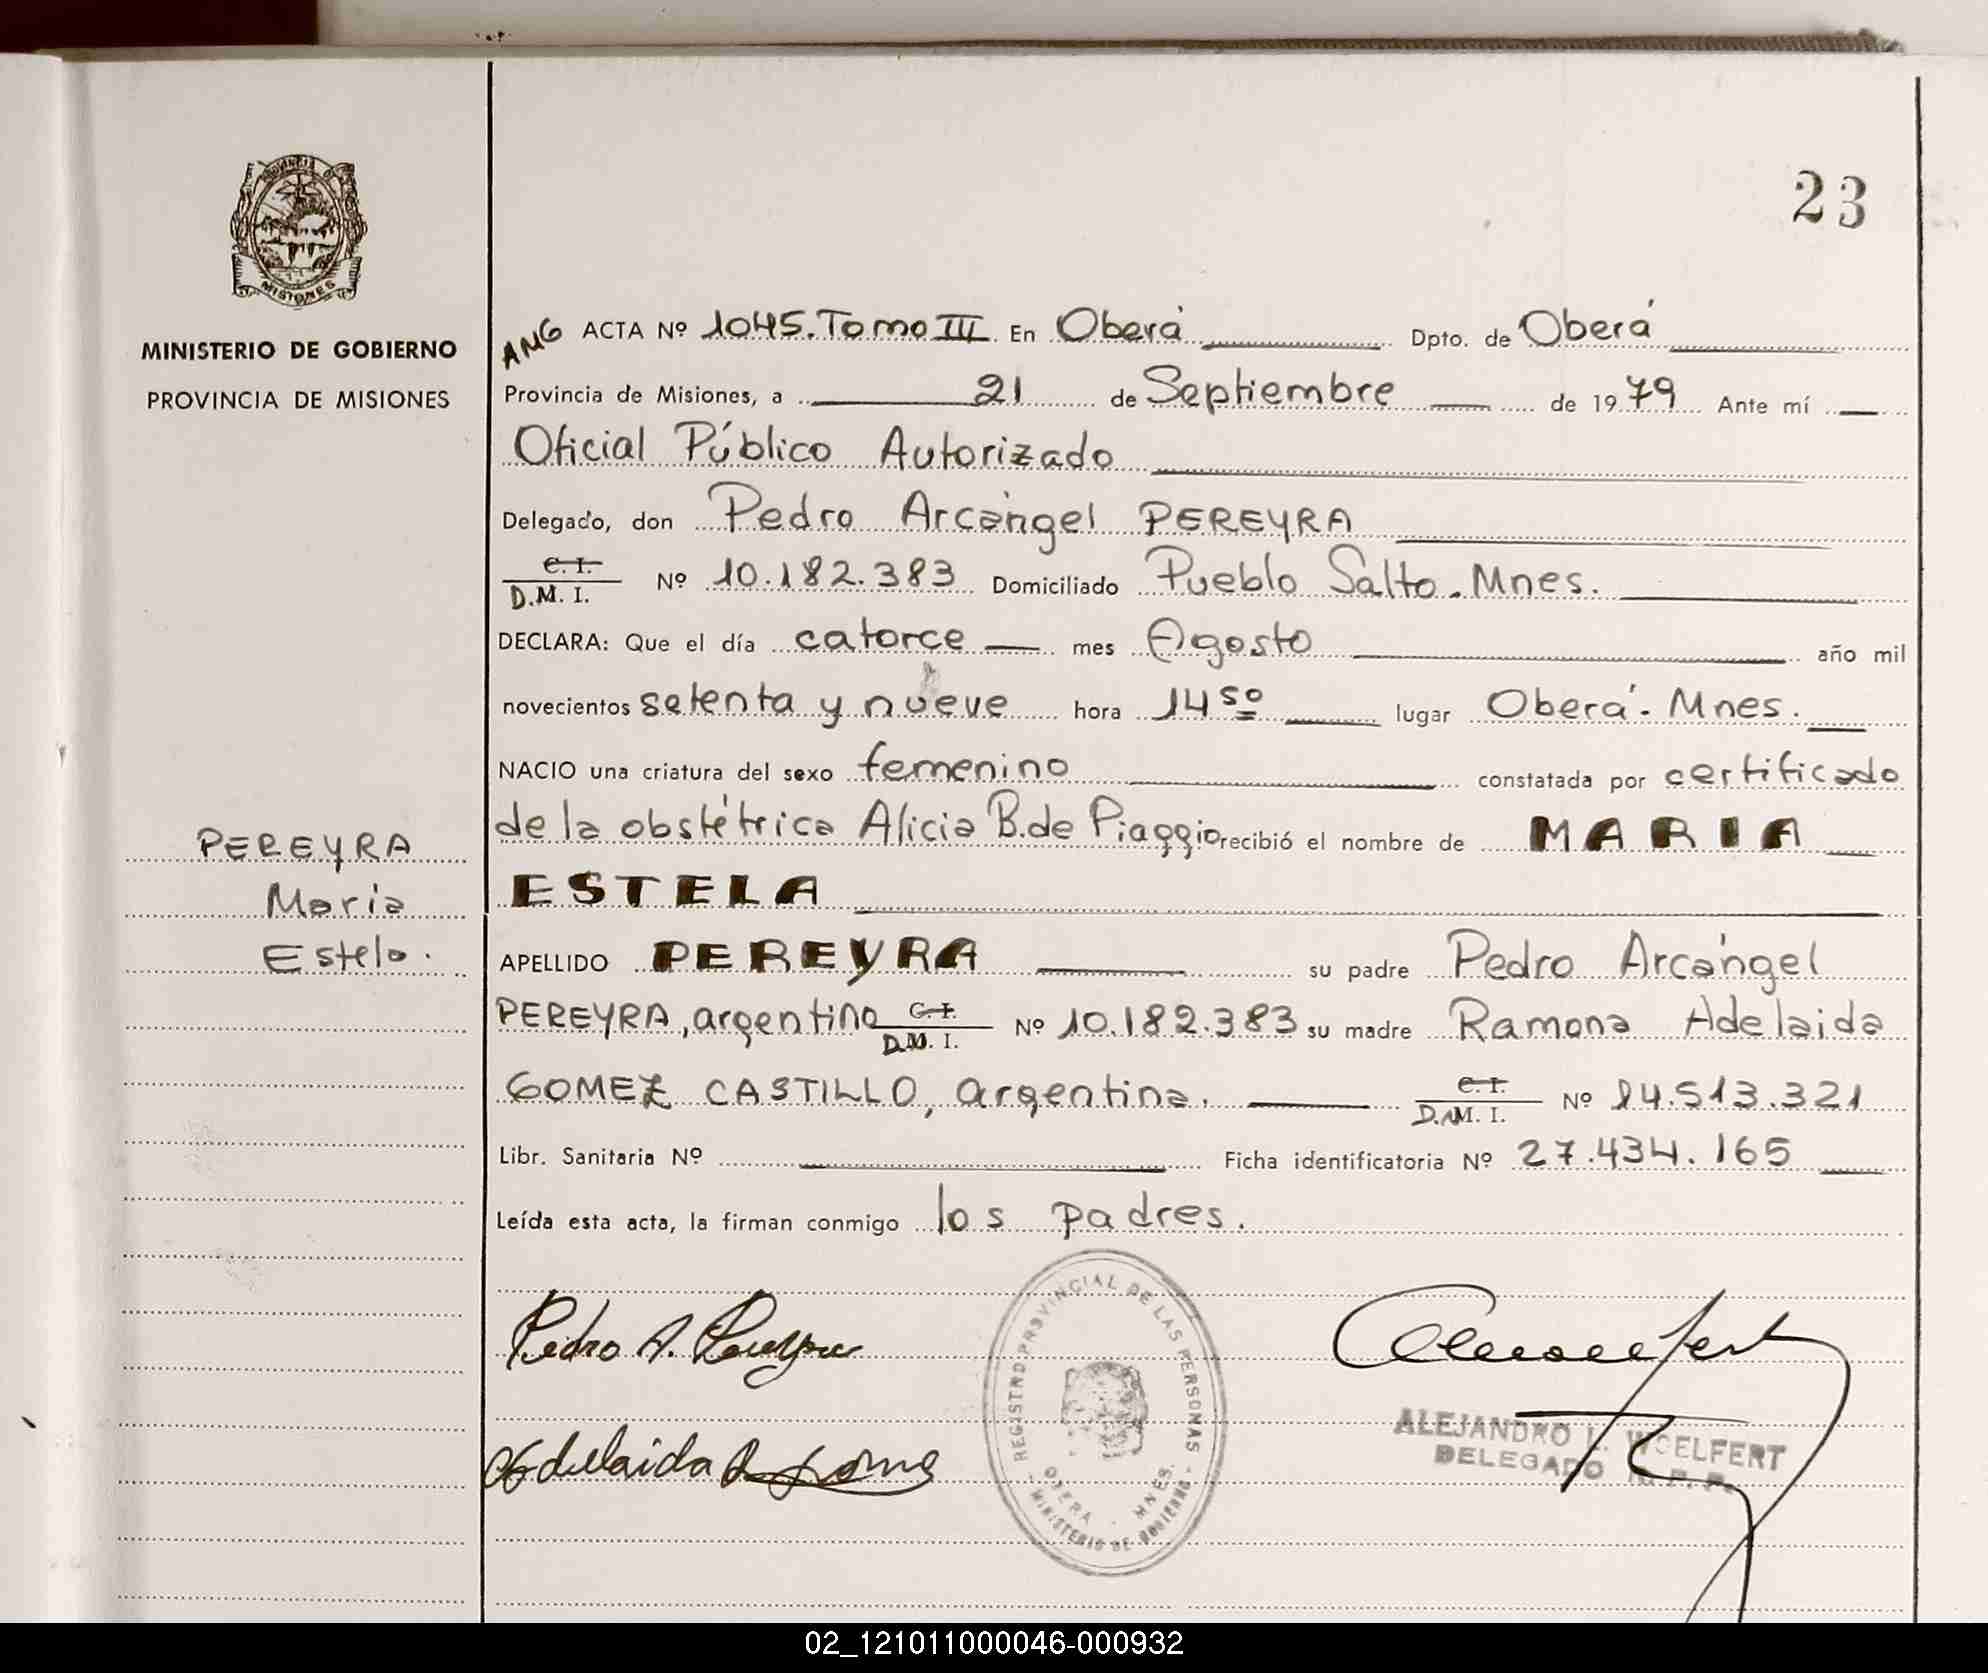 23
PROVINCIA D
MISIONES
MINISTERIO DE GOBIERNO
PROVINCIA DE MISIONES
PEREYRA
Maria
Estela.
AMG ACTA Nº 1045. Tomo III En Oberá Dpto. de Oberá
Provincia de Misiones, a 21 de Septiembre de 1979 Ante mí
Oficial Público Autorizado
Delegado, don Pedro Arcángel PEREYRA
C. I.
D.M. I. Nº 10.182.383 Domiciliado Pueblo Salto. Mnes.
DECLARA: Que el día catorce mes Agosto año mil
novecientos setenta y nueve hora 14 50 lugar Oberá. Mnes.
NACIO una criatura del sexo femenino constatada por certificado
de la obstétrica Alicia B. de Piaggio recibió el nombre de MARIA
ESTELA
APELLIDO PEREYRA su padre Pedro Arcángel
PEREYRA, argentino C. I. D.M. I. Nº 10.182.383 su madre Ramona Adelaida
GOMEZ CASTILLO, argentina. C. I. D.M. I. Nº 14.513.321
Libr. Sanitaria Nº Ficha identificatoria Nº 27.434.165
Leída esta acta, la firman conmigo los padres.
Pedro A. Pereyra
Adelaida R
REGISTRO PROVINCIAL DE LAS PERSONAS - MINISTERIO DE GOBIERNO -
OBERA - MNES.
ALEJANDRO L. WOELFERT
DELEGADO R. P. P.
02_121011000046-000932